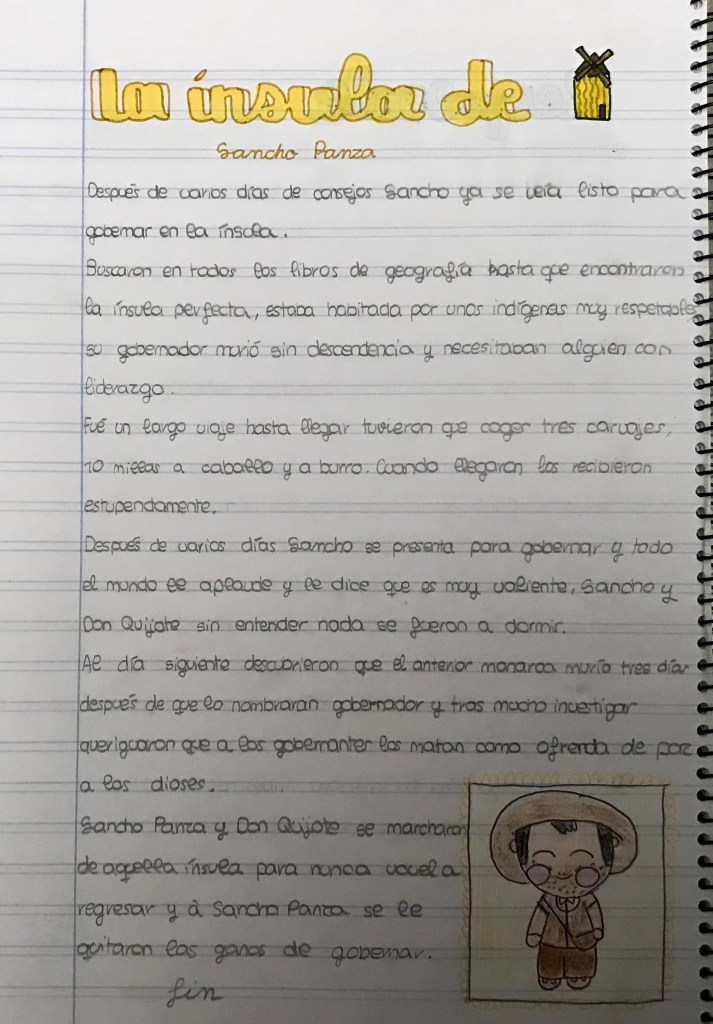 La ínsula de
Sancho Panza
Después de varios días de consejos Sancho ya se veía listo para
gobernar en la ínsula.
Buscaron en todos los libros de geografía hasta que encontraron
la ínsula perfecta, estaba habitada por unos indígenas muy respetables
su gobernador murió sin descendencia y necesitaban alguien con
liderazgo.
Fué un largo viaje hasta llegar tuvieron que coger tres carruajes,
10 millas a caballo y a burro. Cuando llegaron los recibieron
estupendamente.
Después de varios días Sancho se presenta para gobernar y todo
el mundo le aplaude y le dice que es muy valiente, Sancho y
Don Quijote sin entender nada se fueron a dormir.
Al día siguiente descubrieron que el anterior monarca murío tres días
después de que lo nombraran gobernador y tras mucho investigar
queriguaron que a los gobernantes los matan como ofrenda de paz
a los dioses.
Sancho Panza y Don Quijote se marcharon
de aquella ínsula para nunca a
regresar y à Sancho Panza se le
quitaron las ganas de gobernar.
fin